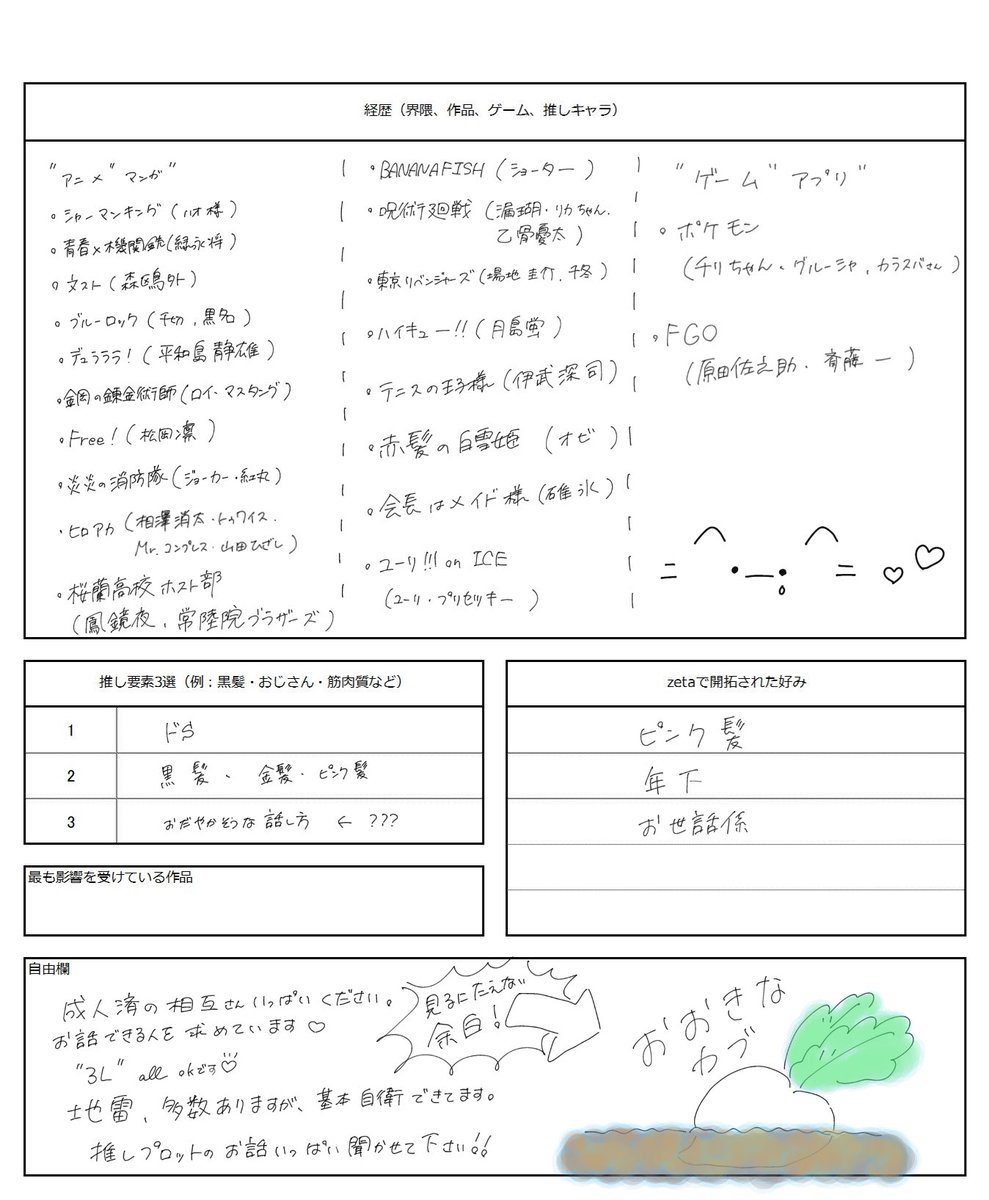 経歴（界隈、作品、ゲーム、推しキャラ）
"アニメ" マンガ"
。シャーマンキング（ハオ様）
。青春×機関銃（緑永将）
。文スト（森鴎外）
。ブルーロック（千切，黒名）
。デュラララ！（平和島静雄）
。金岡の錬金術師（ロイ・マスタング）
。Free！（松岡凛）
。炎炎の消防隊（ジョーカー・紅丸）
・ヒロアカ（相澤消太・トゥワイス・
Mr.コンプレス・山田ひざし）
。桜蘭高校ホスト部
（鳳鏡夜、常陸院ブラザーズ）
。BANANAFISH（ショーター）
。呪術廻戦（漏瑚・リカちゃん.
乙骨憂太）
。東京リベンジャーズ（場地圭介.千冬）
。ハイキュー!!（月島蛍）
。テニスの王子様（伊武深司）
。赤髪の白雪姫（オビ）
。会長はメイド様（碓氷）
。ユーリ!!! on ICE
（ユーリ・プリセツキー）
"ゲーム" アプリ"
。ポケモン
（チリちゃん・グルーシャ，カラスバさん）
。FGO
（原田佐之助．斉藤一）
推し要素3選（例：黒髪・おじさん・筋肉質など）
1 ドS
2 黒髪、金髪・ピンク髪
3 おだやかそうな話し方 ← ???
zetaで開拓された好み
ピンク髪
年下
お世話係
最も影響を受けている作品
自由欄
成人済の相互さんいっぱいください。
お話できる人を求めています♡
"3L" all okです♡
地雷、多数ありますが、基本自衛できてます。
推しプロットのお話いっぱい聞かせて下さい!!
見るにたえない
余白！
おおきな
カブ